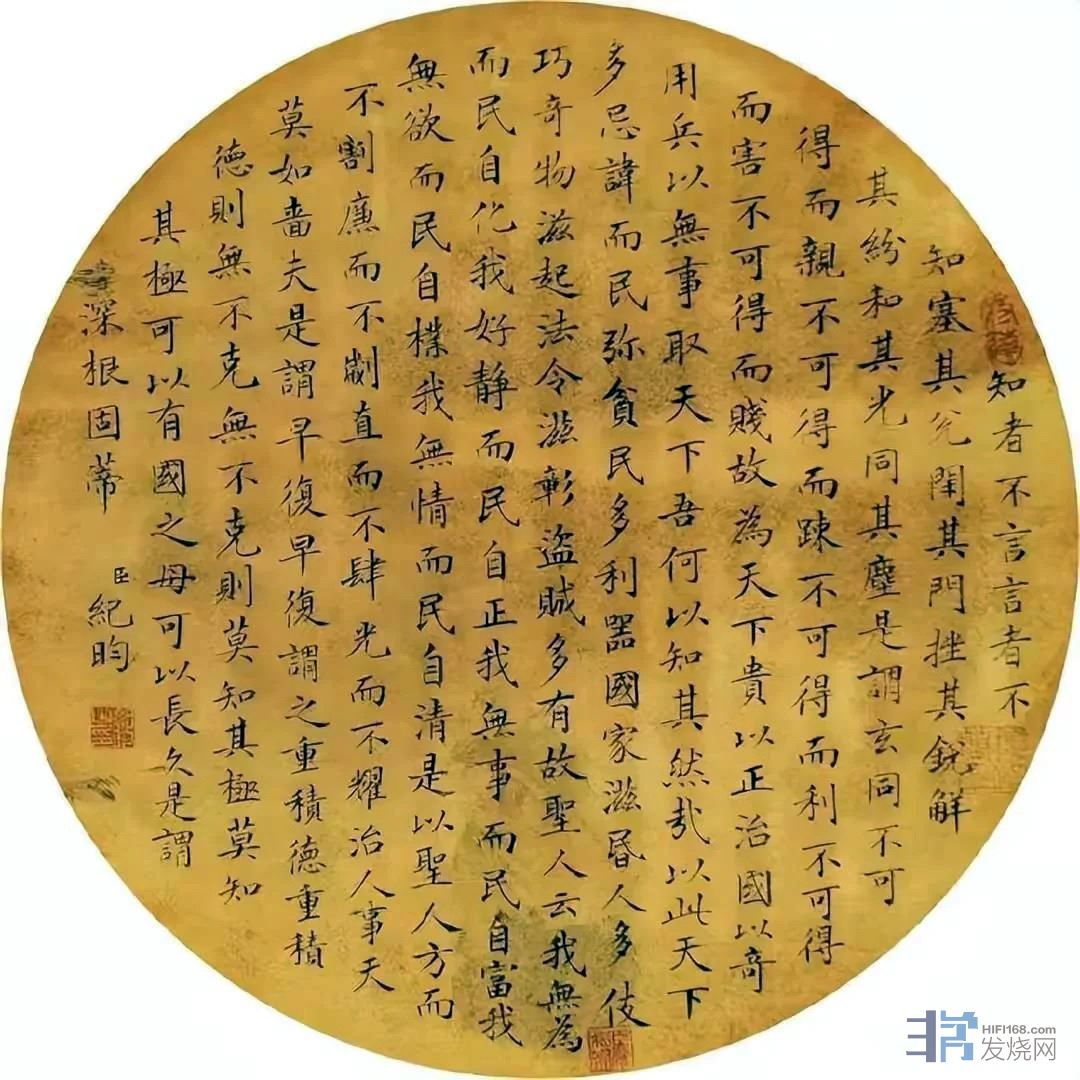 知者不言言者不
知塞其兊閉其門挫其銳解
其紛和其光同其塵是謂玄同不可
得而親不可得而踈不可得而利不可得
而害不可得而賤故為天下貴以正治國以奇
用兵以無事取天下吾何以知其然哉以此天下
多忌諱而民弥貧民多利器國家滋昏人多伎
巧奇物滋起法令滋彰盜賊多有故聖人云我無為
而民自化我好静而民自正我無事而民自富我
無欲而民自樸我無情而民自清是以聖人方而
不割廉而不劌直而不肆光而不耀治人事天
莫如嗇夫是謂早復早復謂之重積德重積
德則無不克無不克則莫知其極莫知
其極可以有國之母可以長久是謂
深根固蒂
臣紀昀
HIFI168.com
发烧网